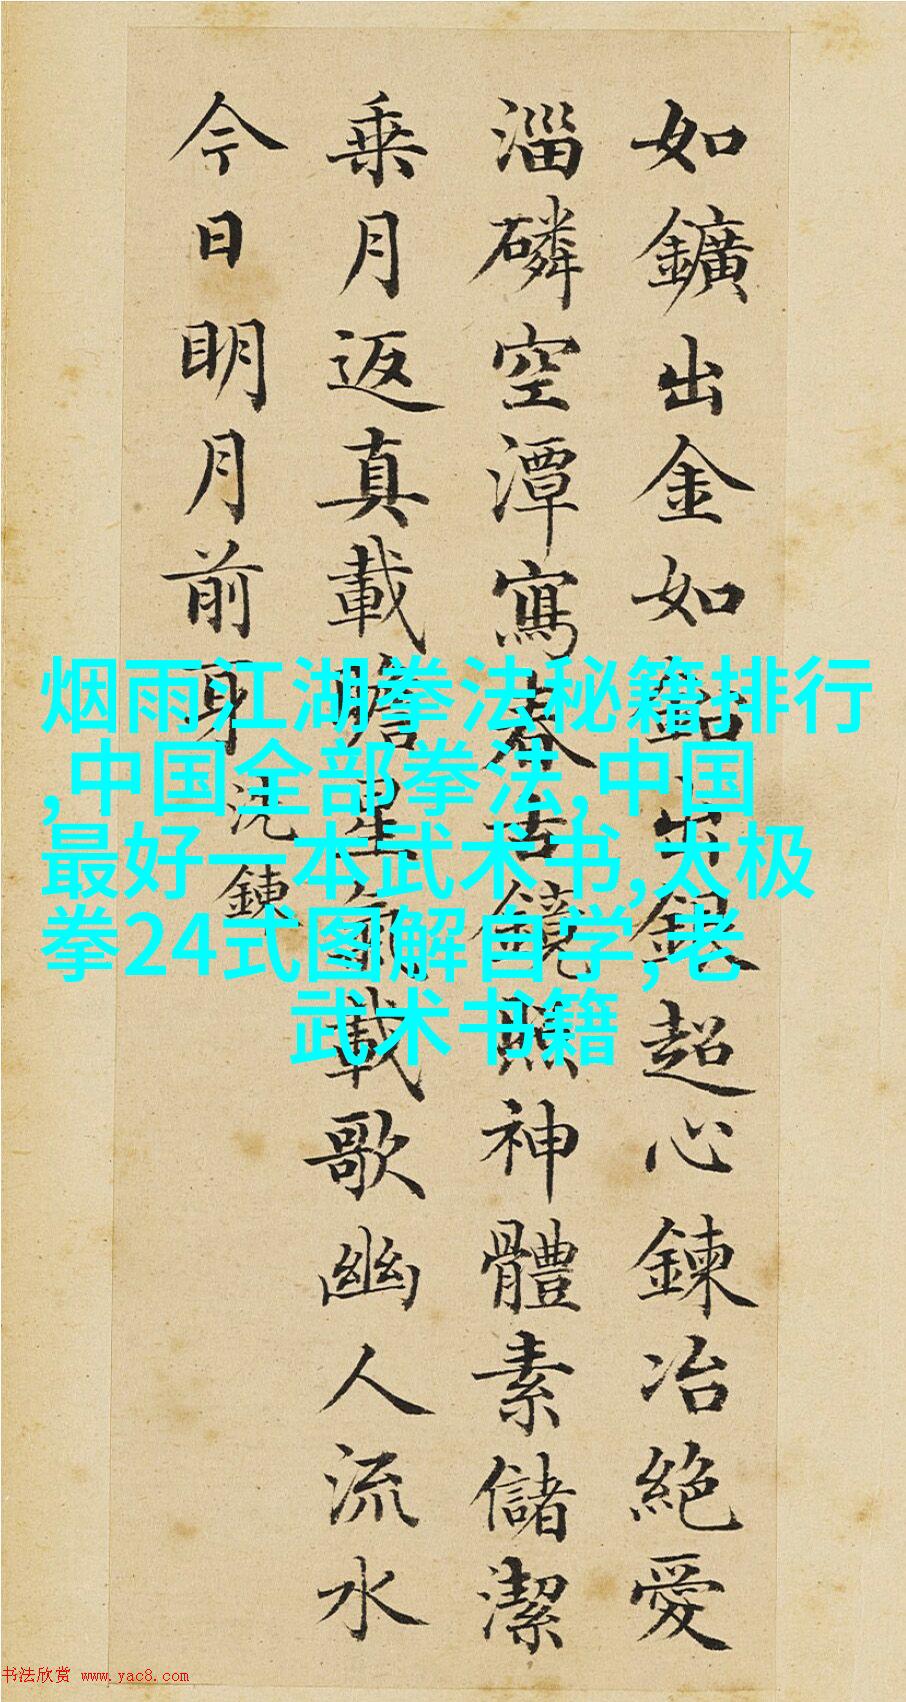 如鑛出金如鉛出銀超心鍊冶絕愛
淄磷空潭寫春古鏡照神體素儲潔
乘月返真載瞻星氣載歌幽人流水
今日明月前身
洗鍊
烟雨江湖拳法秘籍排行
,中国全部拳法,中国
最好一本武术书,太极
拳24式图解自学,老
武术书籍
书法欣赏 www.yac8.com